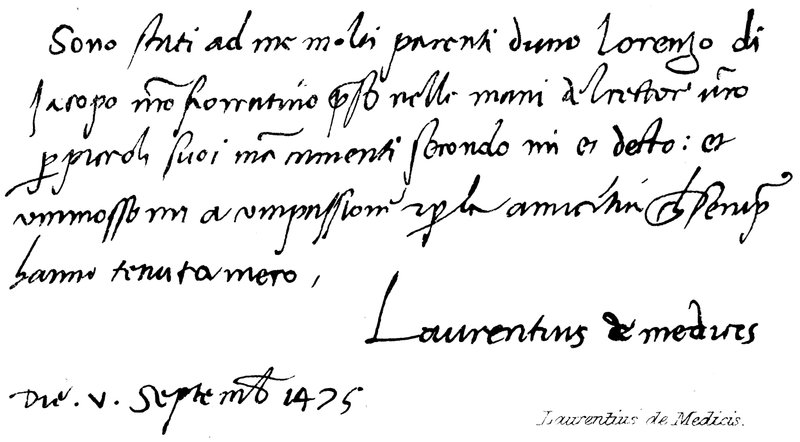 Sono stati ad me molti parenti duno Lorenzo di
Jacopo nr̃o fiorentino p̱so nelle mani del rectore vr̃o
ꝑ piccoli suoi mãcamenti secondo mi et decto: et
ommosso mi a compassione ꝑ la amicitia ch semp̃
hanno tenuta meco,
Laurentius de medicis
Die. v. Septemb̃ 1475
Laurentius de Medicis.